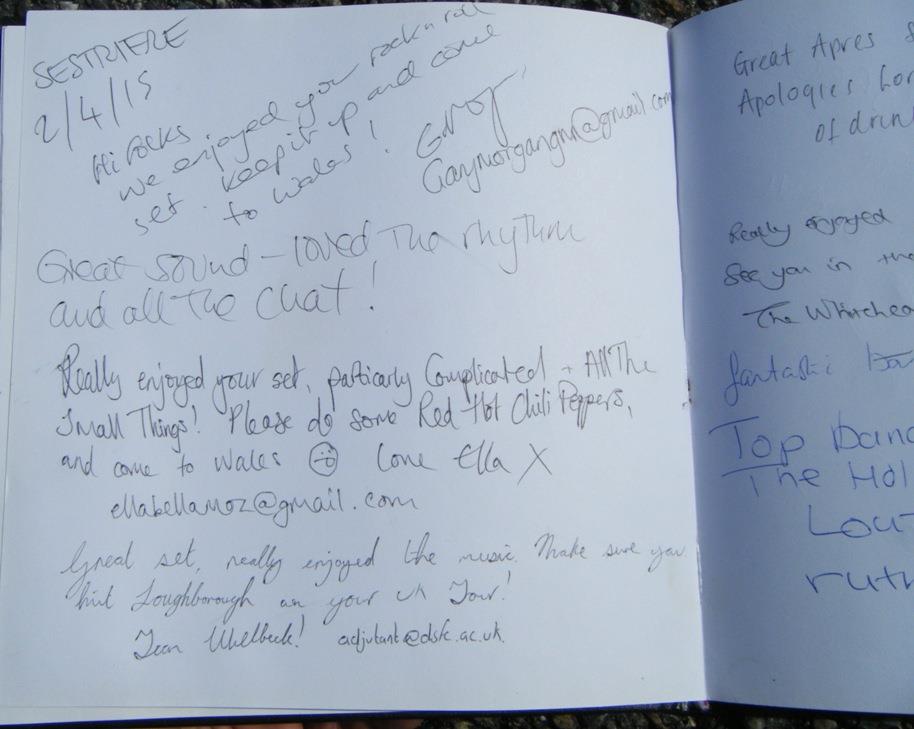 SESTRIERE
2/4/15
Hi Folks
we enjoyed your rock n roll
set. Keep it up and come
to Wales!
Great sound - loved the rhythm
and all the chat!
Really enjoyed your set, particarly Complicated + All The
Small Things! Please do some Red Hot Chili Peppers,
and come to Wales ☺ love Ella X
ellabellamoz@gmail.com
Great set, really enjoyed the music. Make sure you
hit Loughborough on your UK Tour!
Team Welbeck! adjutant@dsfc.ac.uk
Great Apres
Apologies
of drin
Really enjoyed
See you in the
The
fantastic
Top Band
The Hol
Lou
ruth